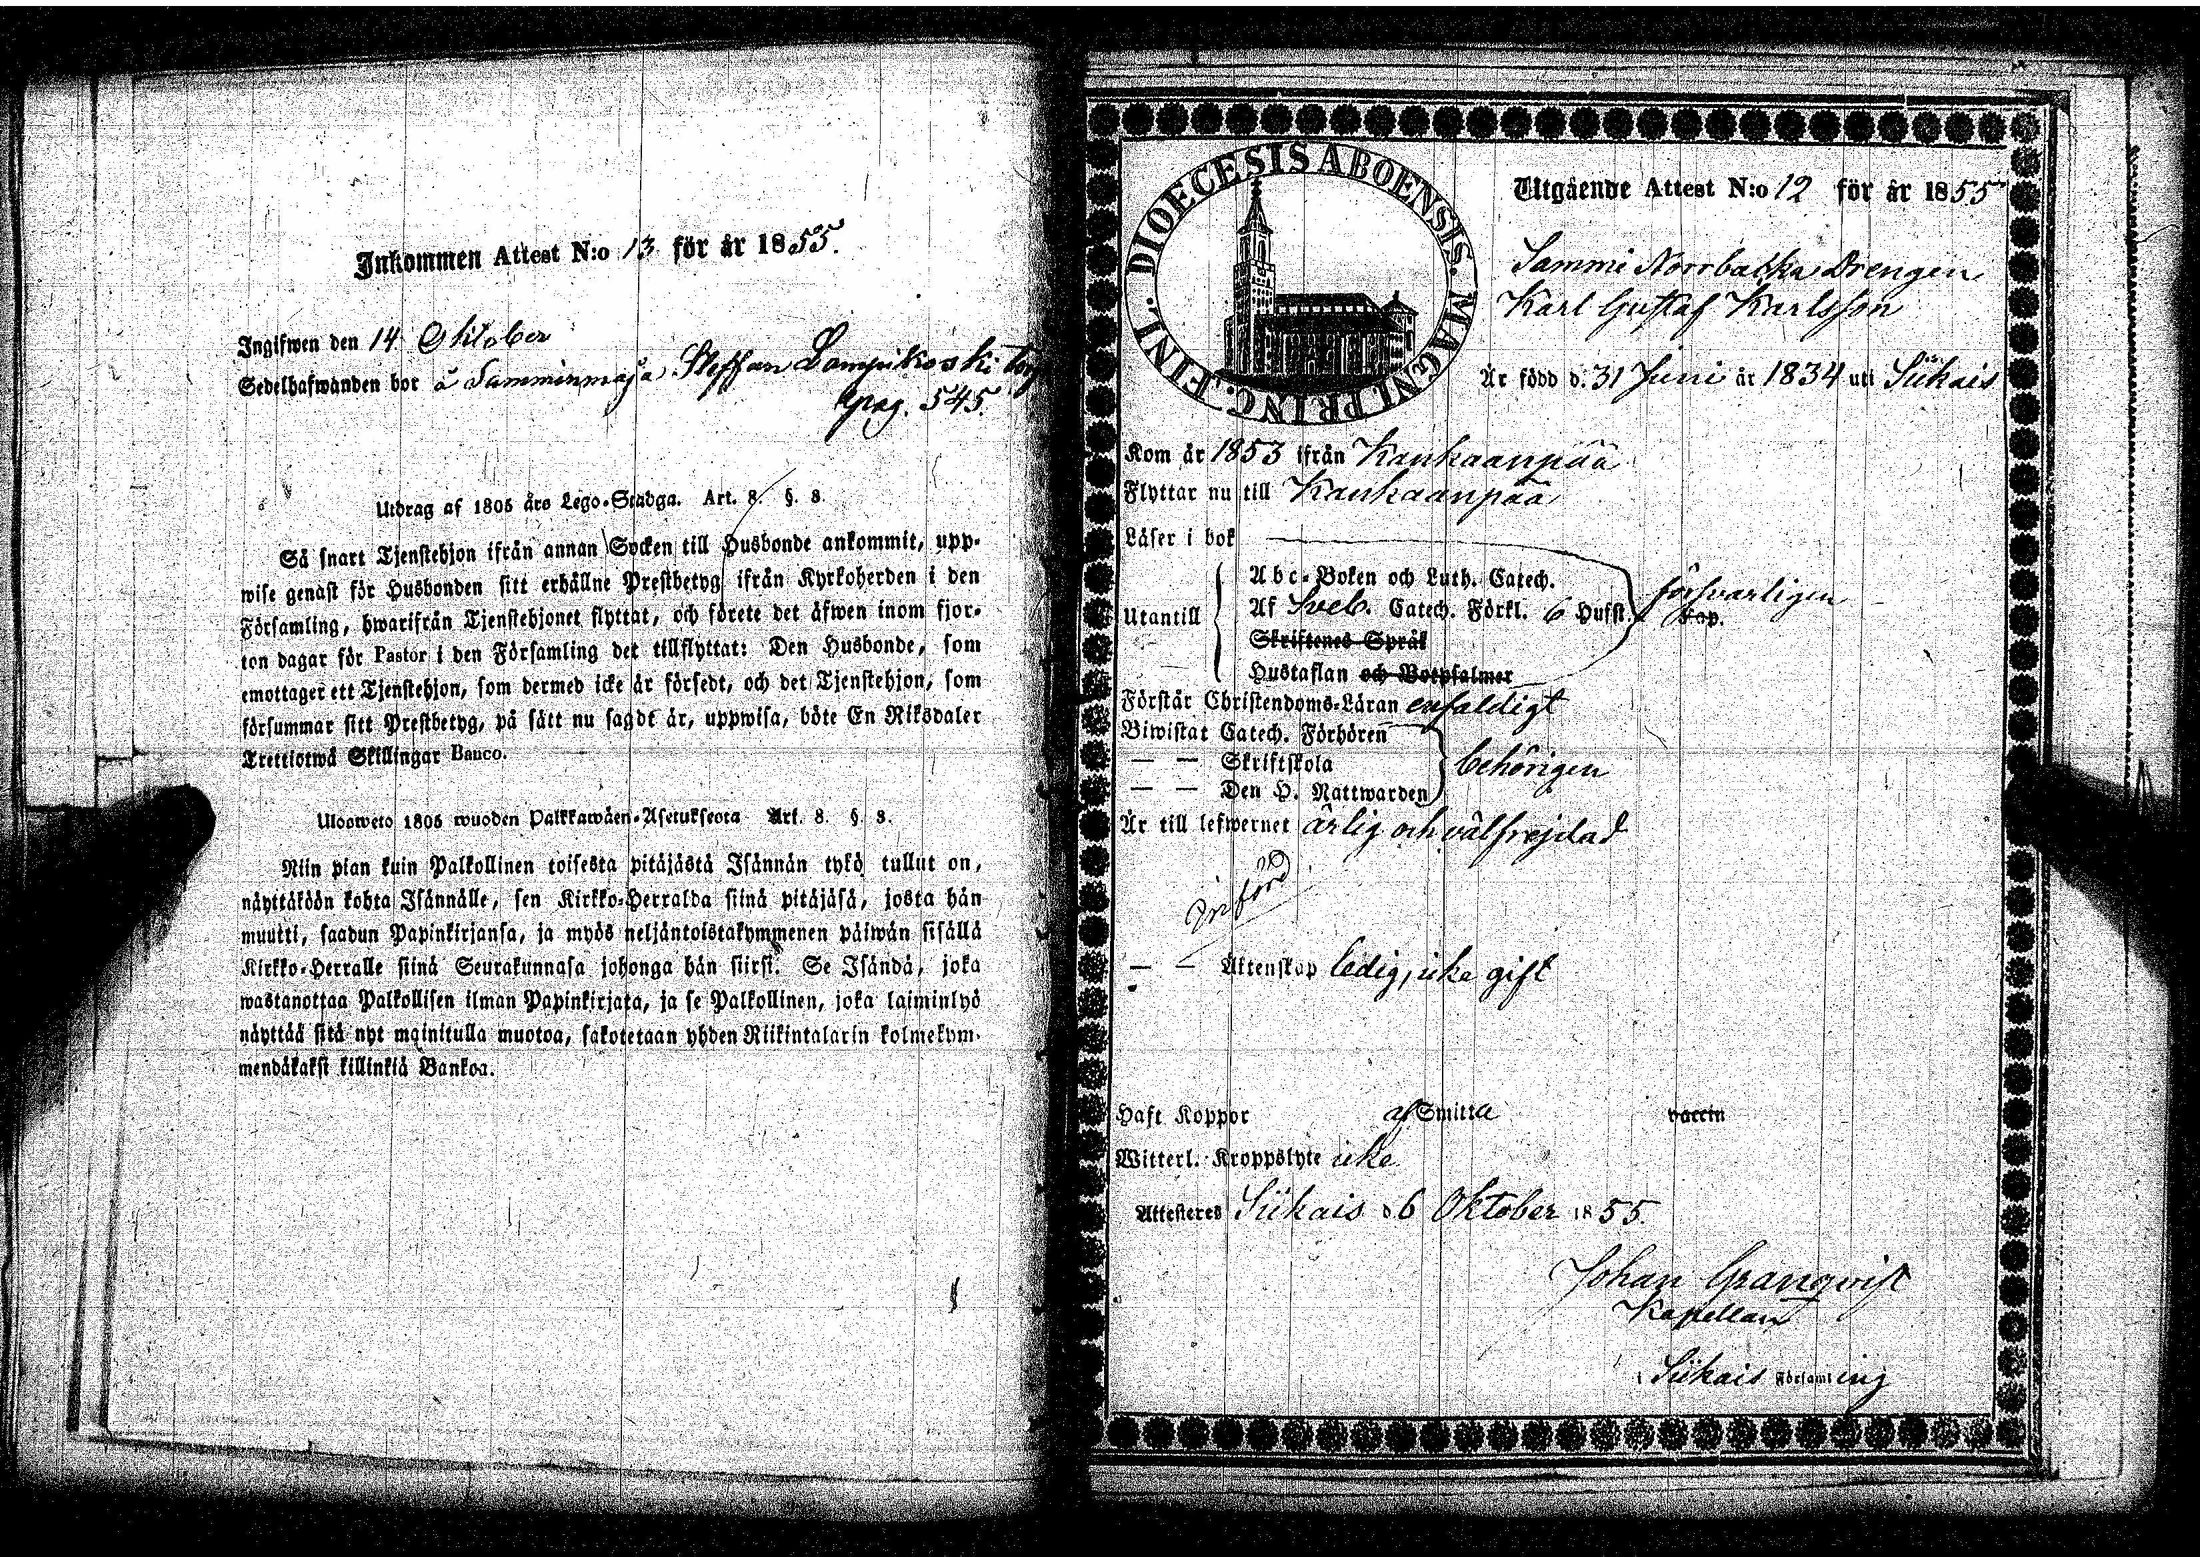 Inkommen Attest N:o 13 för år 1855.
Ingifwen den 14 Oktober
Sedelhafwanden bor å Samminmaja Steffan Lampikoski torp
pag. 545.
Utdrag af 1805 års Lego-Stadga. Art. 8. §. 8.
Så snart Tjenstehjon ifrån annan Socken till Husbonde ankommit, upp-
wise genast för Husbonden sitt erhållne Prestbetyg ifrån Kyrkoherden i den
Församling, hwarifrån Tjenstehjonet flyttat, och förete det äfwen inom fjor-
ton dagar för Pastor i den Församling det tillflyttat: Den Husbonde, som
emottager ett Tjenstehjon, som dermed icke är försedt, och det Tjenstehjon, som
försummar sitt Prestbetyg, på sätt nu sagdt är, uppwisa, böte En Riksdaler
Trettiotwå Skillingar Banco.
Ulosweto 1805 wuoden Palkkawäen-Asetuksesta Art. 8. §. 8.
Niin pian kuin Palkollinen toisesta pitäjästä Isännän tykö tullut on,
näyttäköön kohta Isännälle, sen Kirkko-Herralda siinä pitäjäsä, josta hän
muutti, saadun Papinkirjansa, ja myös neljäntoistakymmenen päiwän sisällä
Kirkko-Herralle siinä Seurakunnasa johonga hän siirsi. Se Isändä, joka
wastanottaa Palkollisen ilman Papinkirjata, ja se Palkollinen, joka laiminlyö
näyttää sitä nyt mainitulla muotoa, sakotetaan yhden Riikintalarin kolmekym-
mendäkaksi killinkiä Bankoa.
DIOECESIS ABOENSIS. MAGNI PRINC. FINL.
Utgående Attest N:o 12 för år 1855
Sammi Norrbacka Drengen
Karl Gustaf Karlsson
Är född d. 31 Juni år 1834 uti Siikais
Kom år 1853 ifrån Kankaanpää
Flyttar nu till Kankaanpää
Läser i bok
Utantill
Abc-Boken och Luth. Catech.
Af Sveb. Catech. Förkl. 6 Hufst. Kap.
försvarligen
Skriftenes Språk
Hustaflan och Botpsalmer
Förstår Christendoms-Läran enfaldigt
Biwistat Catech. Förhören
— — Skriftskola
behörigen
— — Den H. Nattwarden
Är till lefwernet ärlig och välfrejdad
Införd
— — Äktenskap ledig, icke gift
Haft Koppor af Smitta vaccin
Witterl. Kroppslyte icke
Attesteras Siikais d 6 Oktober 1855.
Johan Granqvist
Kapellan
i Siikais Församling